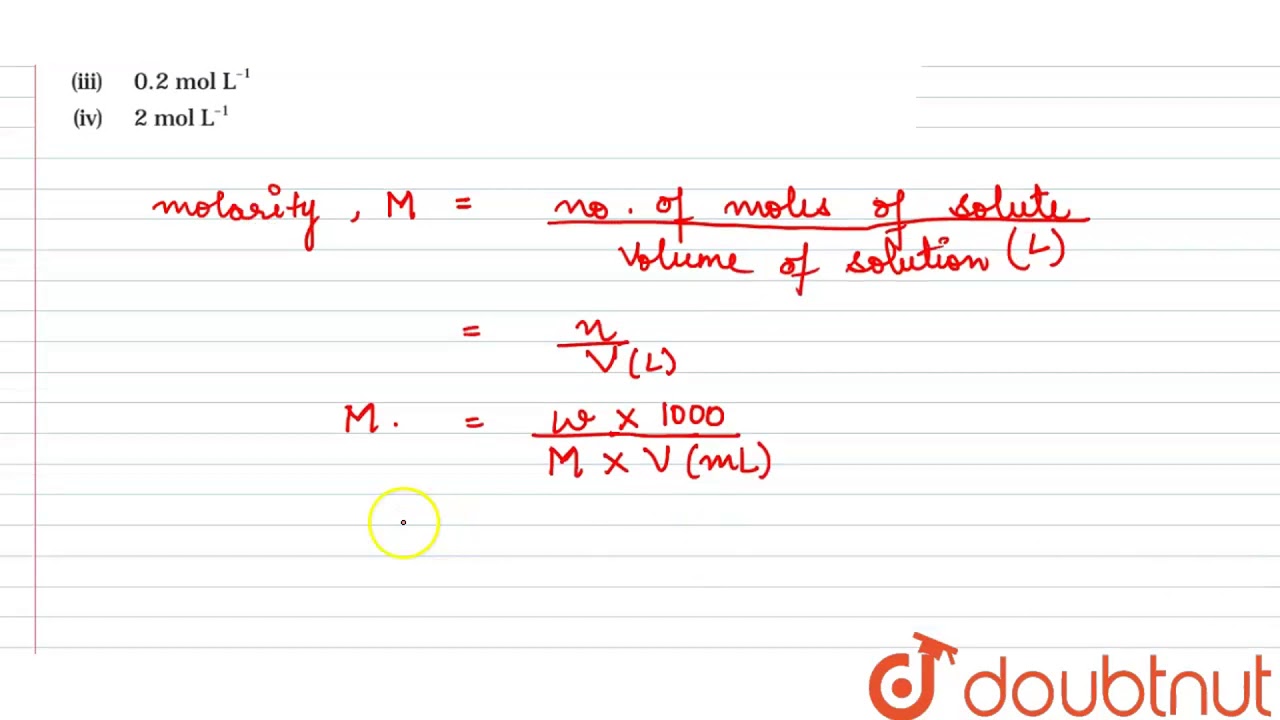 (iii) 0.2 mol L⁻¹
(iv) 2 mol L⁻¹
molarity, M = no. of moles of solute
Volume of solution (L)
= n
V(L)
M. = w × 1000
M × V (mL)
doubtnut